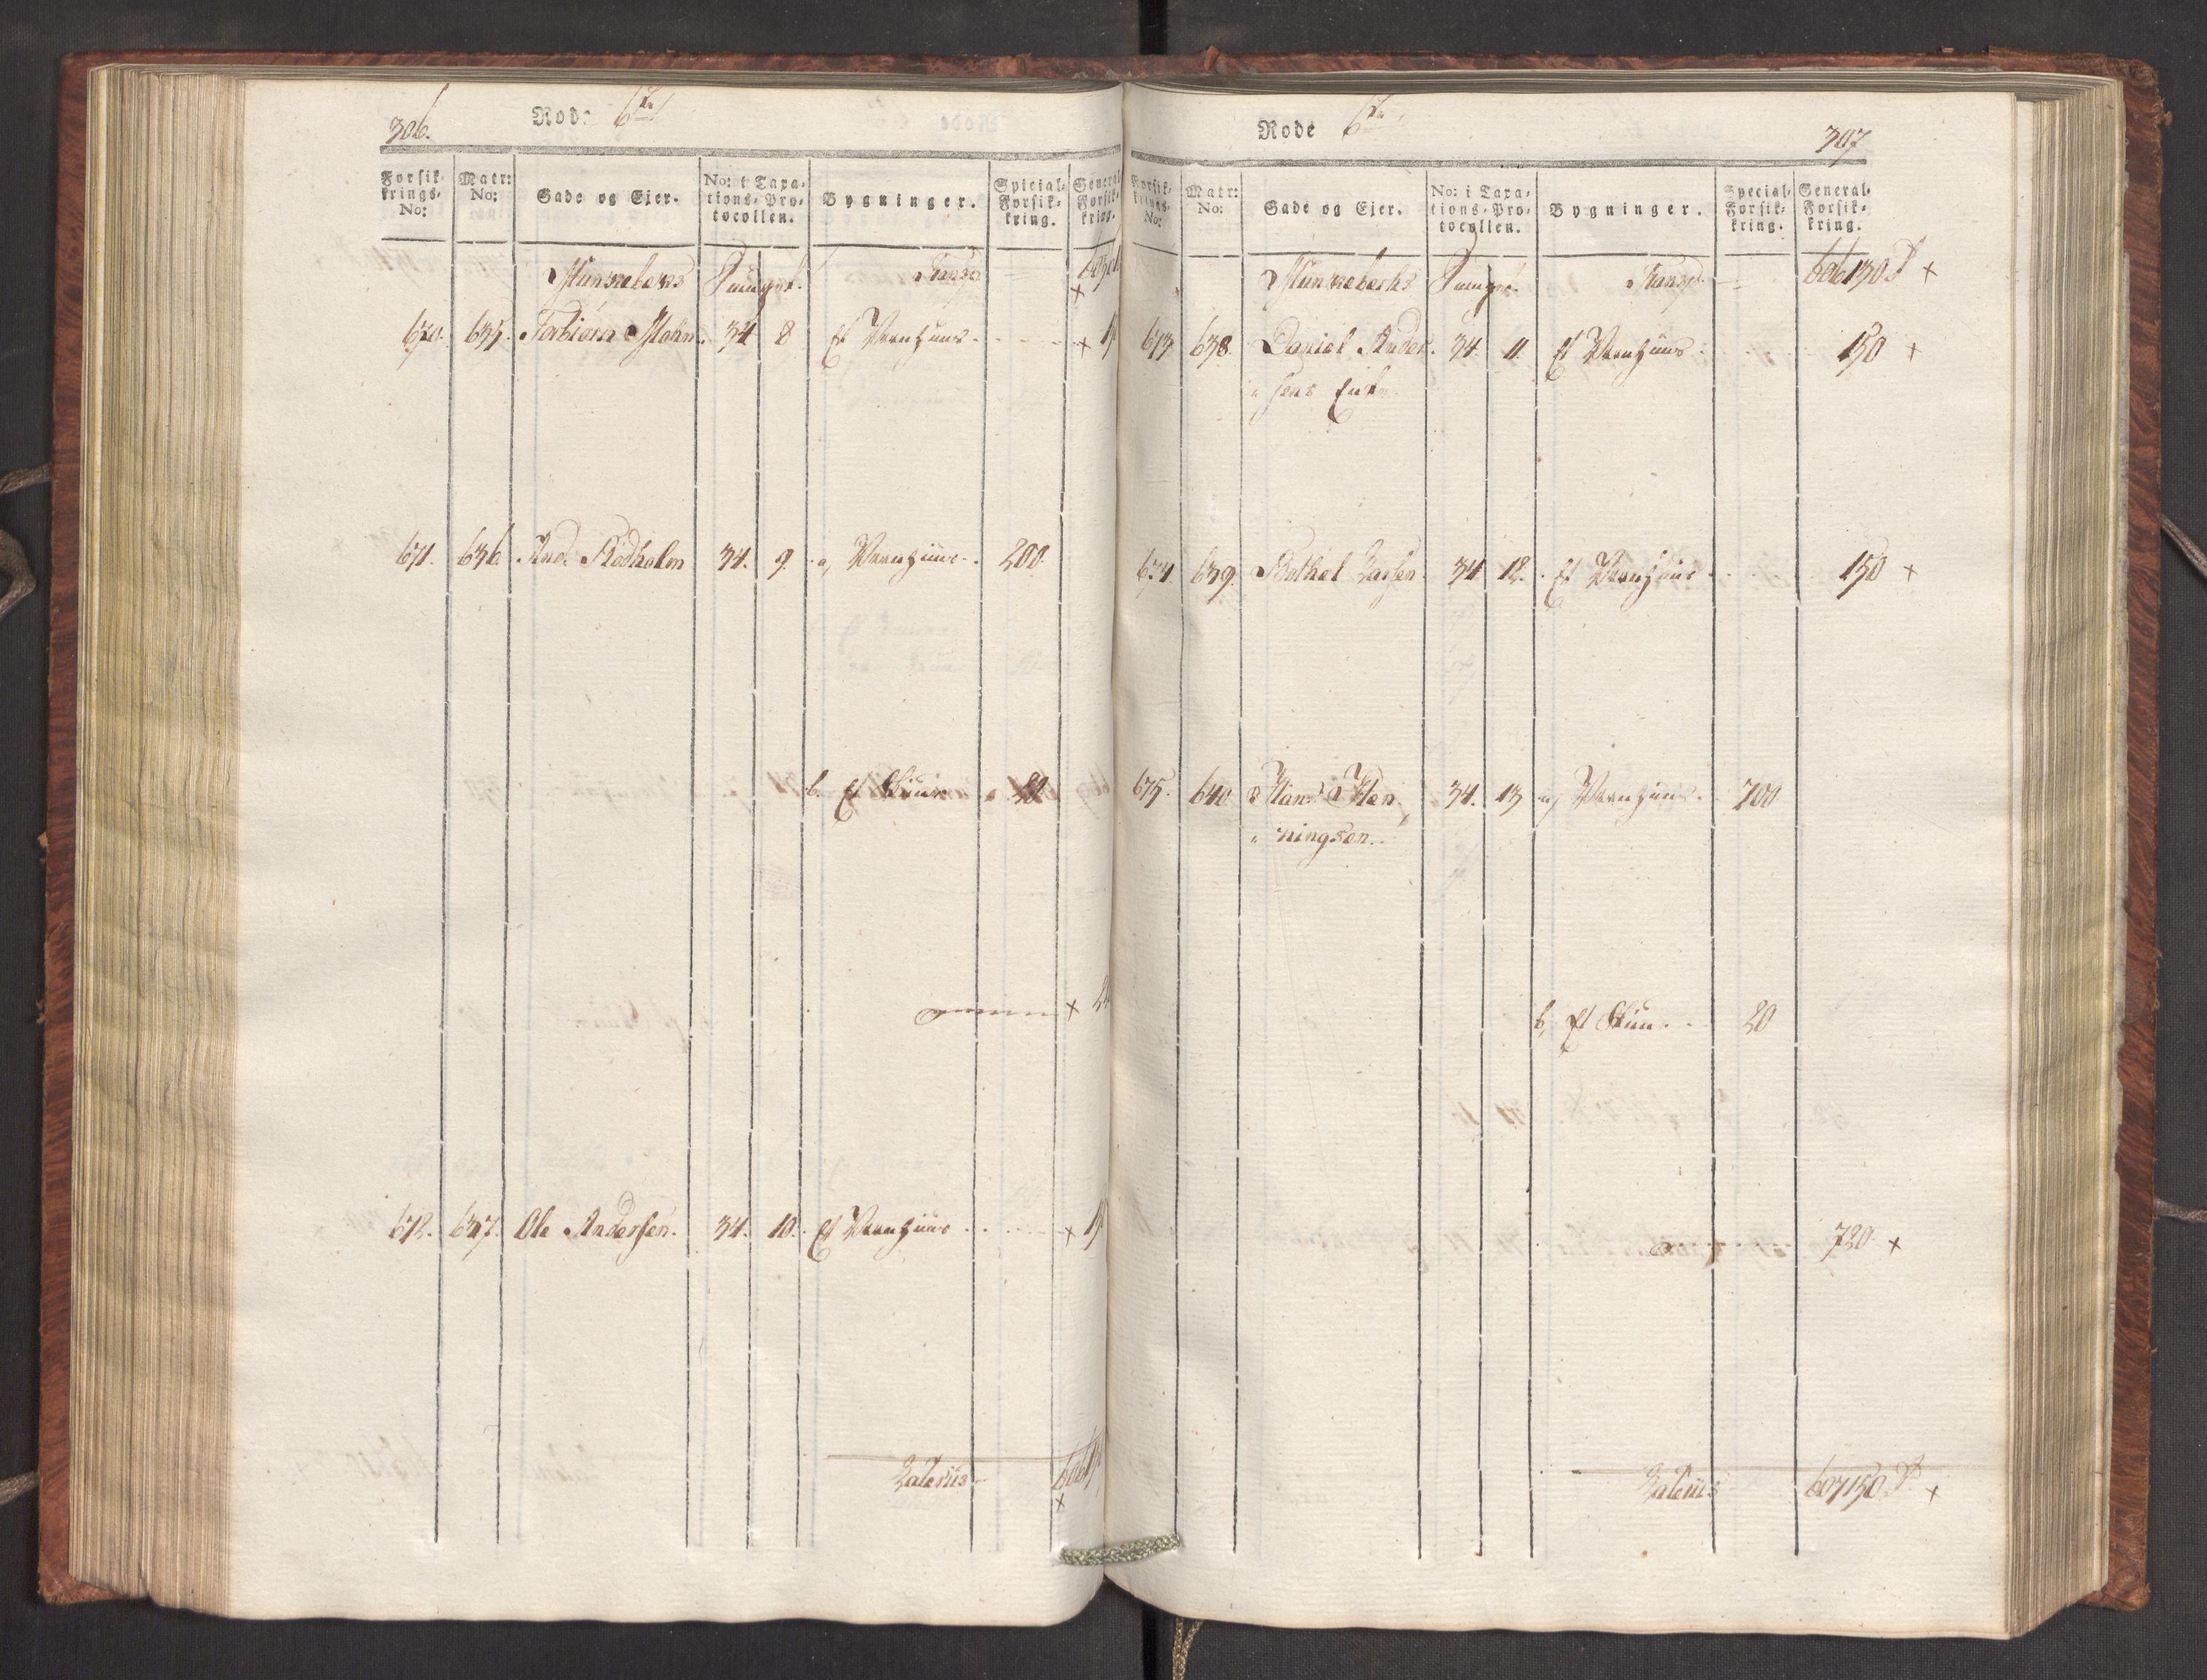 306. Rode 6te
Forsik-krings-No: Matr: No: Gade og Eier. No: i Taxa-tions-Pro-tocollen. Bygninger. Special-Forsik-kring. General-Forsik-kring.
Transp
670. 635. Torbiørn Mohn. 34 8 Et Vaanhuus
671. 636. And: Rødholm 34. 9. a, Vaanhuus 200.
b. Et Skuur 20
672. 637. Ole Andersen. 34. 10. Et Vaanhuus
Lateris
Rode 6te 307
Forsik-krings-No: Matr: No: Gade og Eier. No: i Taxa-tions-Pro-tocollen. Bygninger. Special-Forsik-kring. General-Forsik-kring.
Transp. 606130 +
673 638. Daniel Ander- 34. 11. Et Vaanhuus 150 +
sens Enke
674 639. Bothel Larsen 34 12. Et Vaanhuus 150 +
675. 640 Hans Hen- 34. 13 a, Vaanhuus 700
ningsen.
b, Et Skuur 20
720. +
Lateris 607150 +